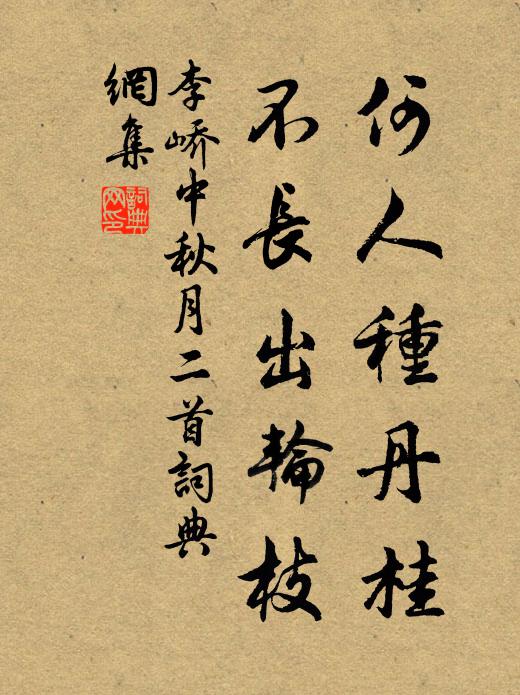 何人種丹桂
不長出輪枝
李嶠中秋月二首詞典
網集
詞典
网印